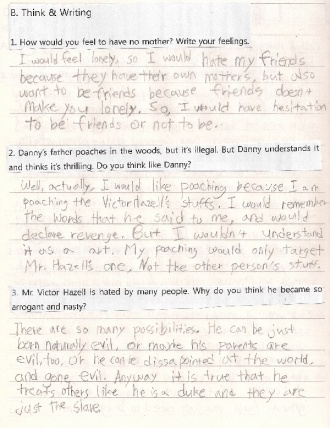 B. Think & Writing
1. How would you feel to have no mother? Write your feelings.
I would feel lonely, so I would hate my friends
because they have their own mothers, but also
want to be friends because friends doesnt
make you lonely. So, I would have hesitation
to be friends or not to be.
2. Danny's father poaches in the woods, but it's illegal. But Danny understands it
and thinks it's thrilling. Do you think like Danny?
Well, actually, I would like poaching because I am
poaching the Victor Hazell's stuffs. I would remember
the words that he said to me, and would
declare revenge. But I wouldn't understand
it as a art. My poaching would only target
Mr. Hazell's one, Not the other person's stuffs.
3. Mr. Victor Hazell is hated by many people. Why do you think he became so
arrogant and nasty?
There are so many possibilities. He can be just
born naturally evil, or maybe his parents are
evil, too, or he can be dissapointed at the world,
and gone evil. Anyway it is true that he
treats others like he is a duke and they are
just the slave.